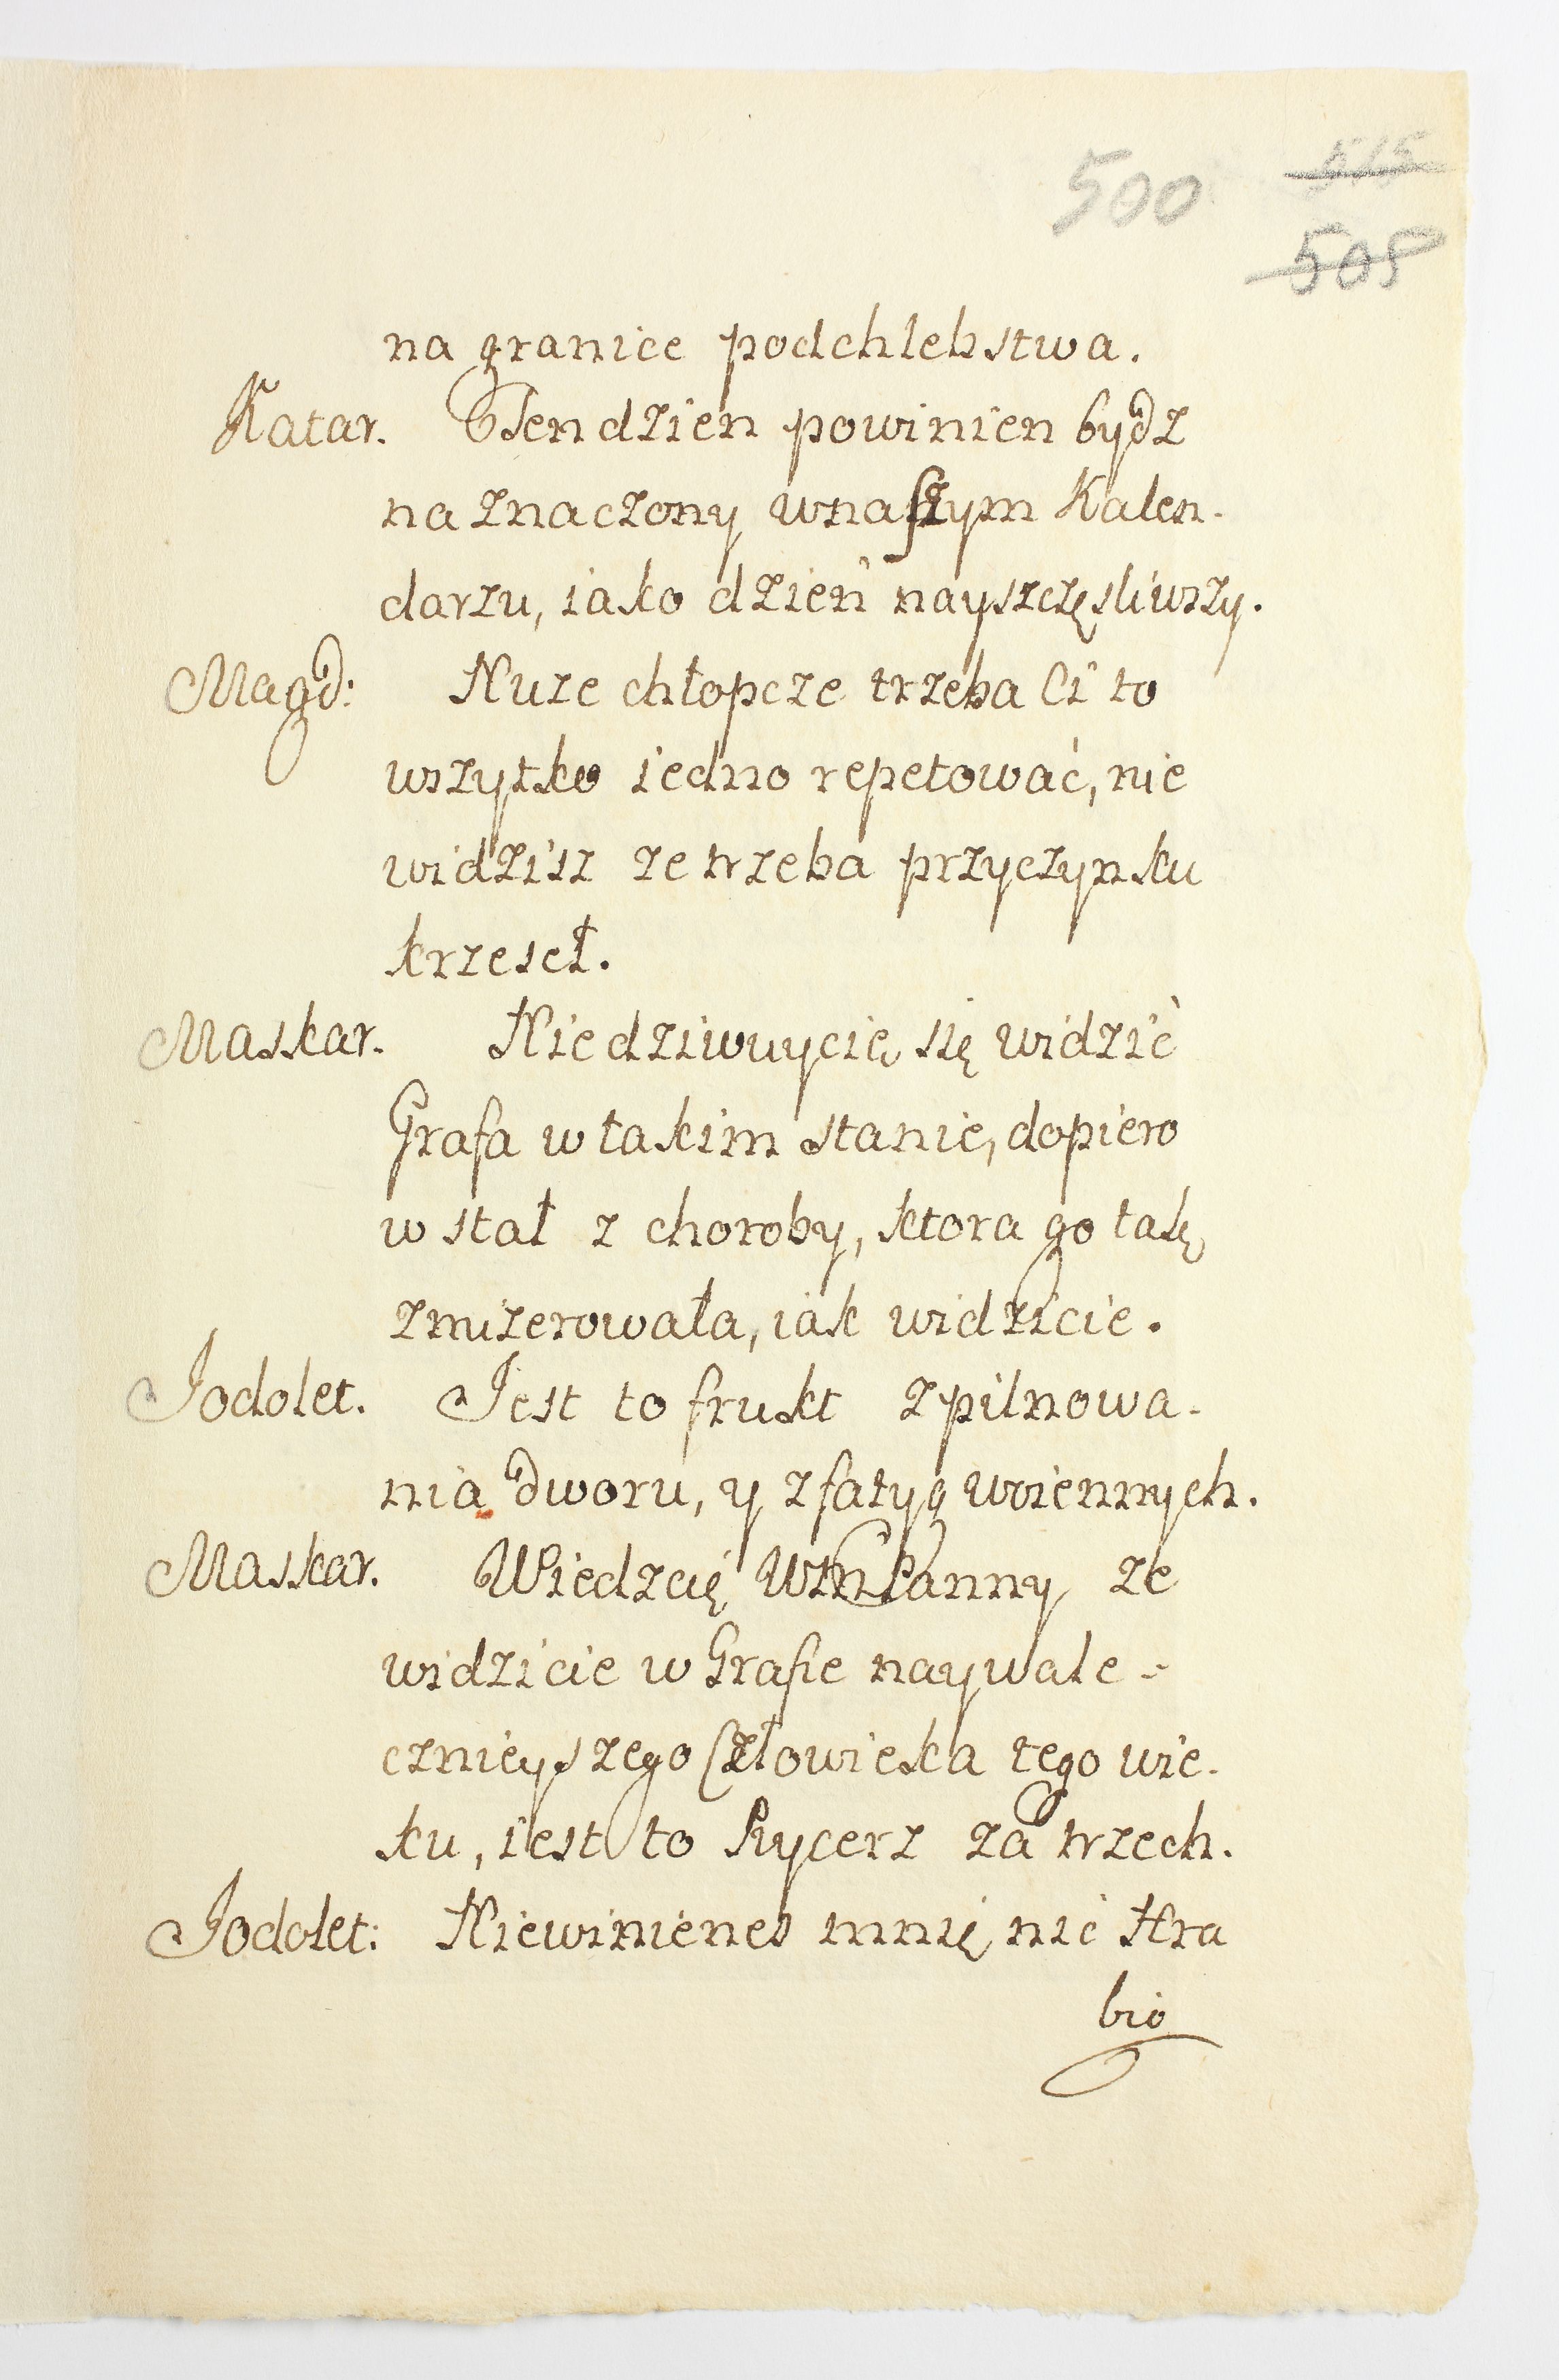 500 515
505
na granice podchlebstwa.
Katar. Ten dzien powinien bydz
naznaczony wnaszym Kalen-
darzu, iako dzień nayszczęsliwszy.
Magd: Nuże chłopcze trzeba Ci to
wszytko iedno repetować, nie
widzisz ze trzeba przyczynku
krzeseł.
Maskar. Niedziwuycię się widzić
Grafa w takim stanie, dopiero
wstał z choroby, ktora go takę
zmizerowała, iak widzicie.
Jodolet. Jest to frukt z pilnowa-
nia dworu, y z fatyg woiennych.
Maskar. Wiedzcię Panny ze
widzicie w Grafie naywale-
cznieyszego Człowieka tego wie-
ku, iest to Rycerz za trzech.
Jodolet: Niewinienes mnię nic Hra
bio